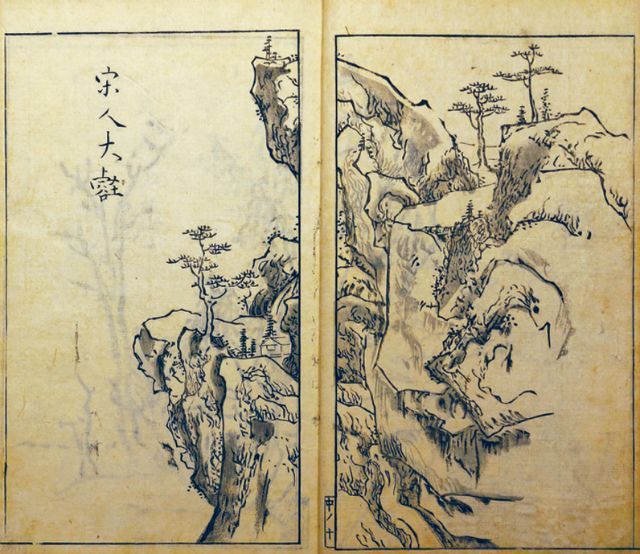 宋人大
中ノ十